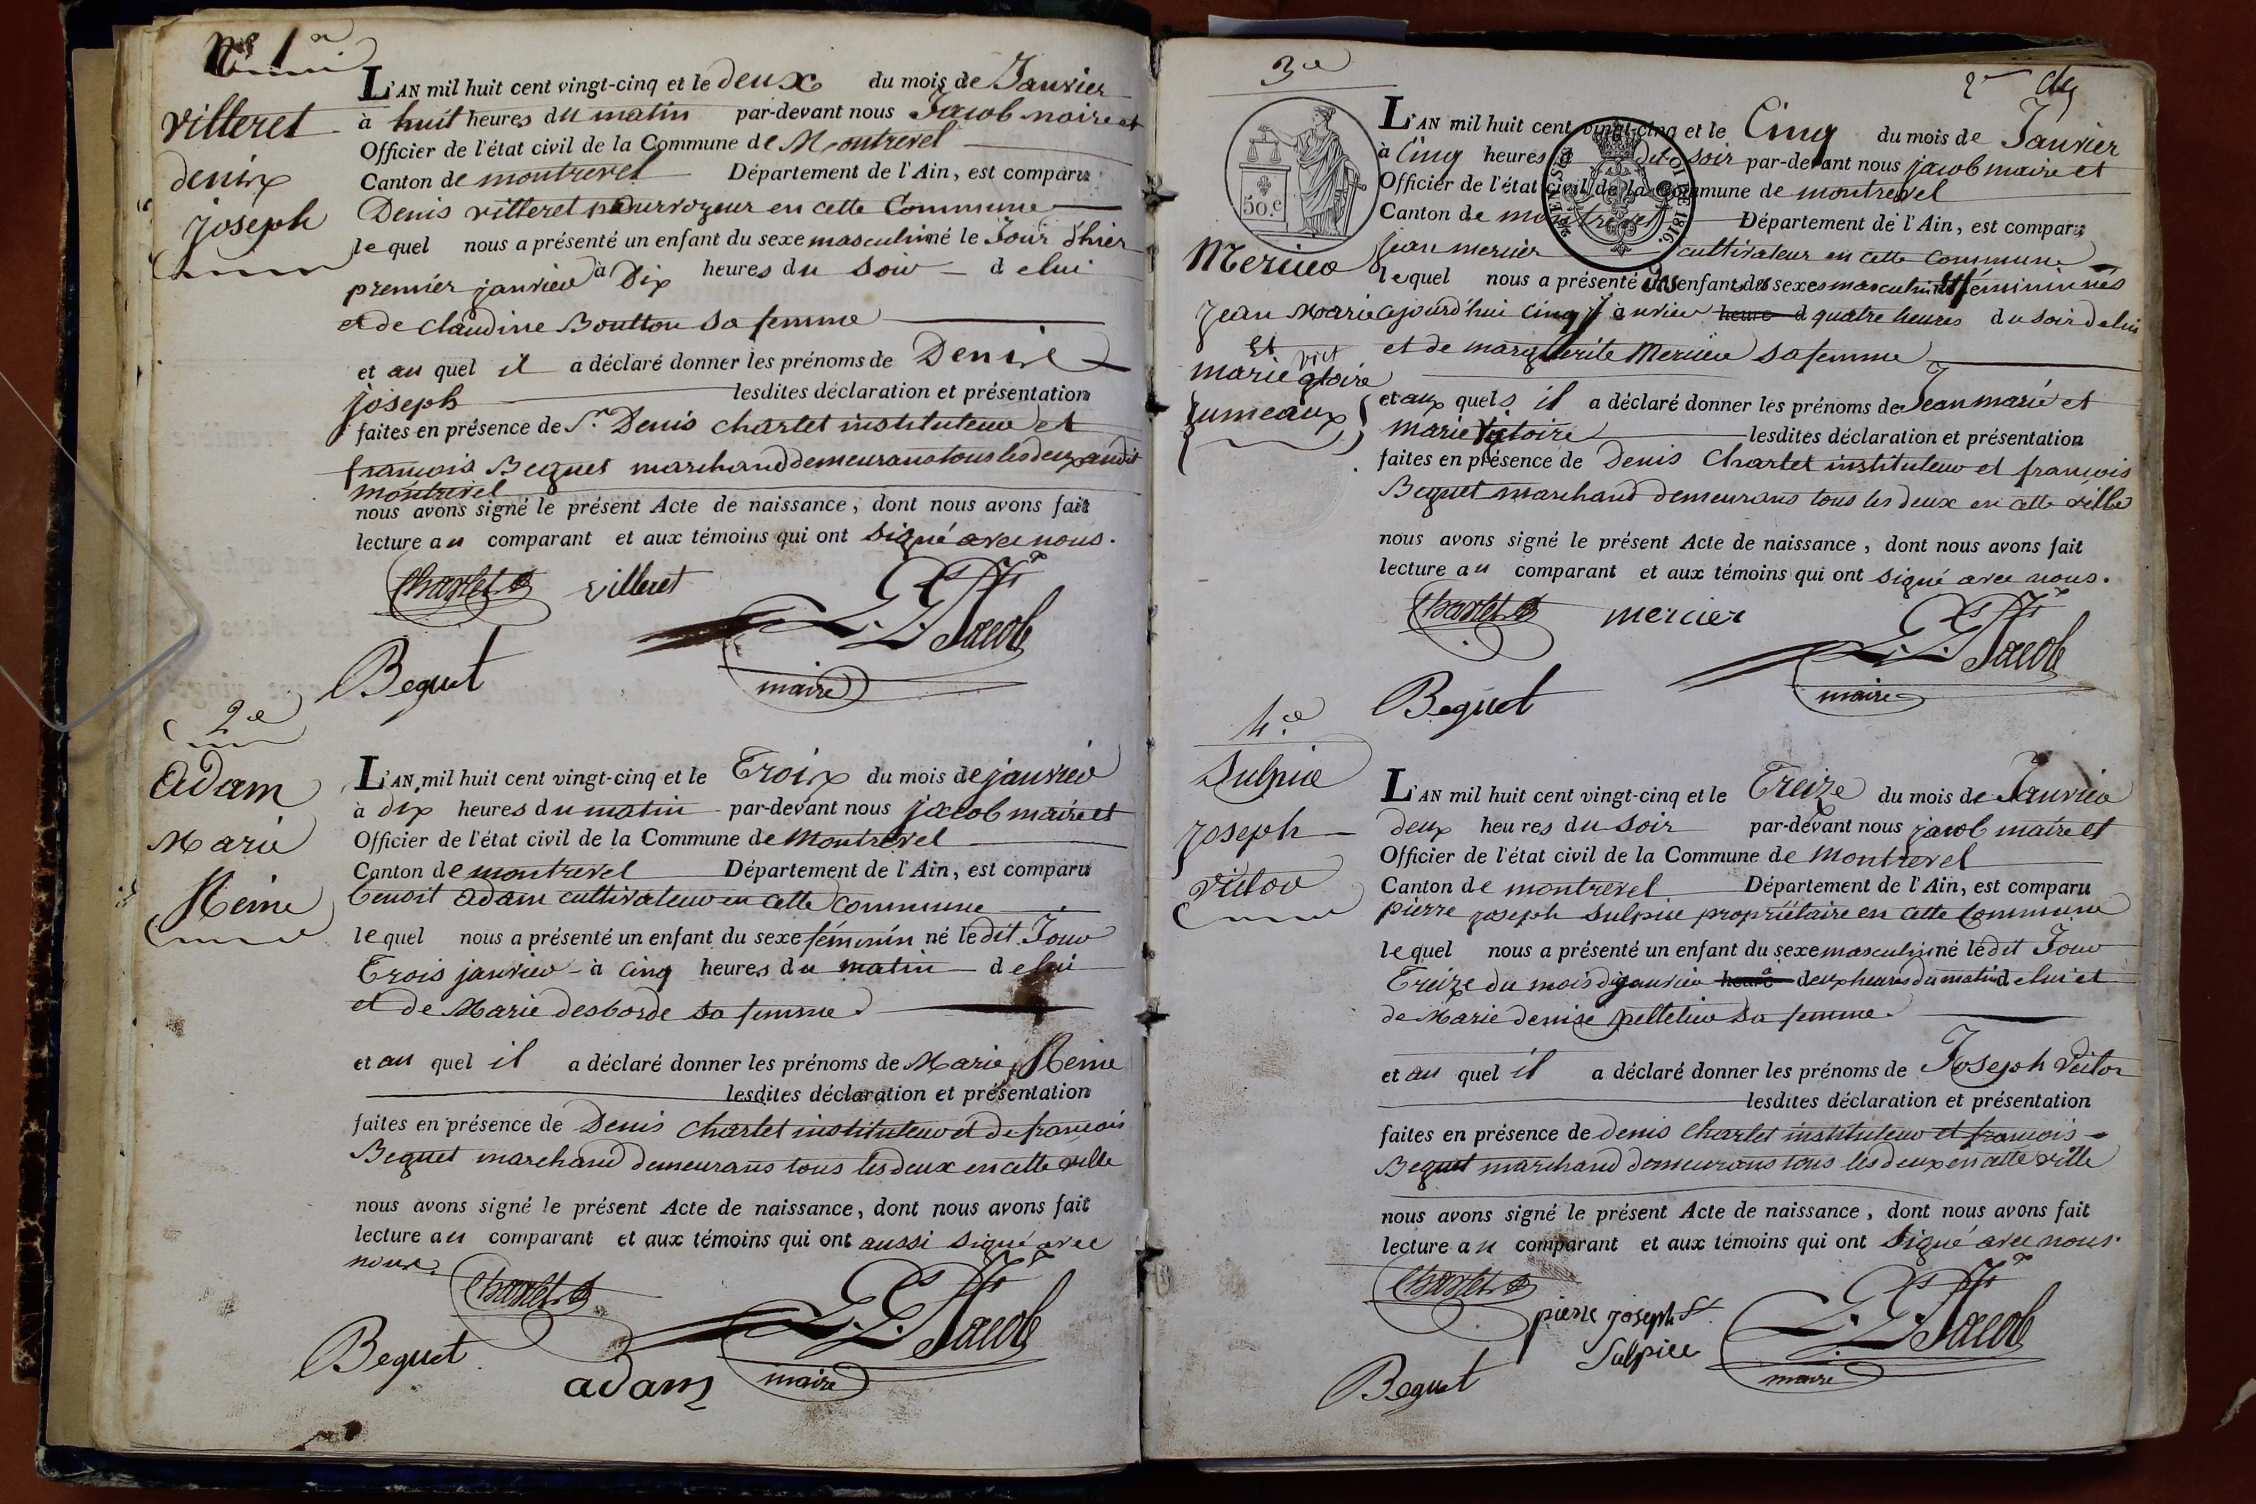 N° 1er
Villeret
denis
joseph
L'AN mil huit cent vingt-cinq et le deux du mois de Janvier
à huit heures du matin par-devant nous Jacob maire et
Officier de l'état civil de la Commune de Montrevel
Canton de montrevel Département de l'Ain, est comparu
Denis villeret pourvoyeur en cette Commune
lequel nous a présenté un enfant du sexe masculin né le Jour d'hier
premier janvier à Dix heures du soir de lui
et de claudine Boutton sa femme
et au quel il a déclaré donner les prénoms de Denis
joseph lesdites déclaration et présentation
faites en présence de Sr. Denis charlet instituteur et
françois Beguet marchand demeurans tous les deux audit
montrevel
nous avons signé le présent Acte de naissance, dont nous avons fait
lecture au comparant et aux témoins qui ont signé avec nous.
Charlet D villeret
Jacob
Beguet maire
2e
Adam
Marie
Reine
L'AN mil huit cent vingt-cinq et le Trois du mois de janvier
à dix heures du matin par-devant nous jacob maire et
Officier de l'état civil de la Commune de Montrevel
Canton de montrevel Département de l'Ain, est comparu
benoit adam cultivateur en cette commune
lequel nous a présenté un enfant du sexe féminin né ledit Jour
Trois janvier à cinq heures du matin de lui
et de Marie desborde sa femme
et au quel il a déclaré donner les prénoms de Marie Reine
lesdites déclaration et présentation
faites en présence de Denis charlet instituteur et de françois
Beguet marchand demeurans tous les deux en cette ville
nous avons signé le présent Acte de naissance, dont nous avons fait
lecture au comparant et aux témoins qui ont aussi signé avec
nous.
Charlet D
Jacob
Beguet adam maire
3e
2e
50.c
LOI DE 1816.
Mercier
Jean Marie
et
marie victoire
jumeaux
L'AN mil huit cent vingt-cinq et le Cinq du mois de Janvier
à Cinq heures du soir par-devant nous jacob maire et
Officier de l'état civil de la Commune de montrevel
Canton de montrevel Département de l'Ain, est comparu
jean mercier cultivateur en cette commune
lequel nous a présenté des enfants des sexes masculin et féminin nés
ajourd'hui cinq janvier heure d quatre heures du soir de lui
et de marguerite Mercier sa femme
et aux quels il a déclaré donner les prénoms de Jean marie et
marie victoire lesdites déclaration et présentation
faites en présence de Denis Charlet instituteur et françois
Beguet marchand demeurans tous les deux en cette ville
nous avons signé le présent Acte de naissance, dont nous avons fait
lecture au comparant et aux témoins qui ont signé avec nous.
Charlet D mercier
Jacob
Beguet maire
4.e
Sulpice
joseph
victor
L'AN mil huit cent vingt-cinq et le Treize du mois de Janvier
à deux heures du soir par-devant nous jacob maire et
Officier de l'état civil de la Commune de Montrevel
Canton de montrevel Département de l'Ain, est comparu
pierre joseph sulpice propriétaire en cette Commune
lequel nous a présenté un enfant du sexe masculin né ledit Jour
Treize du mois de janvier heure à deux heures du matin de lui et
de Marie denise pelletier sa femme
et au quel il a déclaré donner les prénoms de Joseph Victor
lesdites déclaration et présentation
faites en présence de denis Charlet instituteur et françois
Beguet marchand demeurans tous les deux en cette ville
nous avons signé le présent Acte de naissance, dont nous avons fait
lecture au comparant et aux témoins qui ont signé avec nous.
Charlet D
pierre joseph
Sulpice
Jacob
Beguet maire